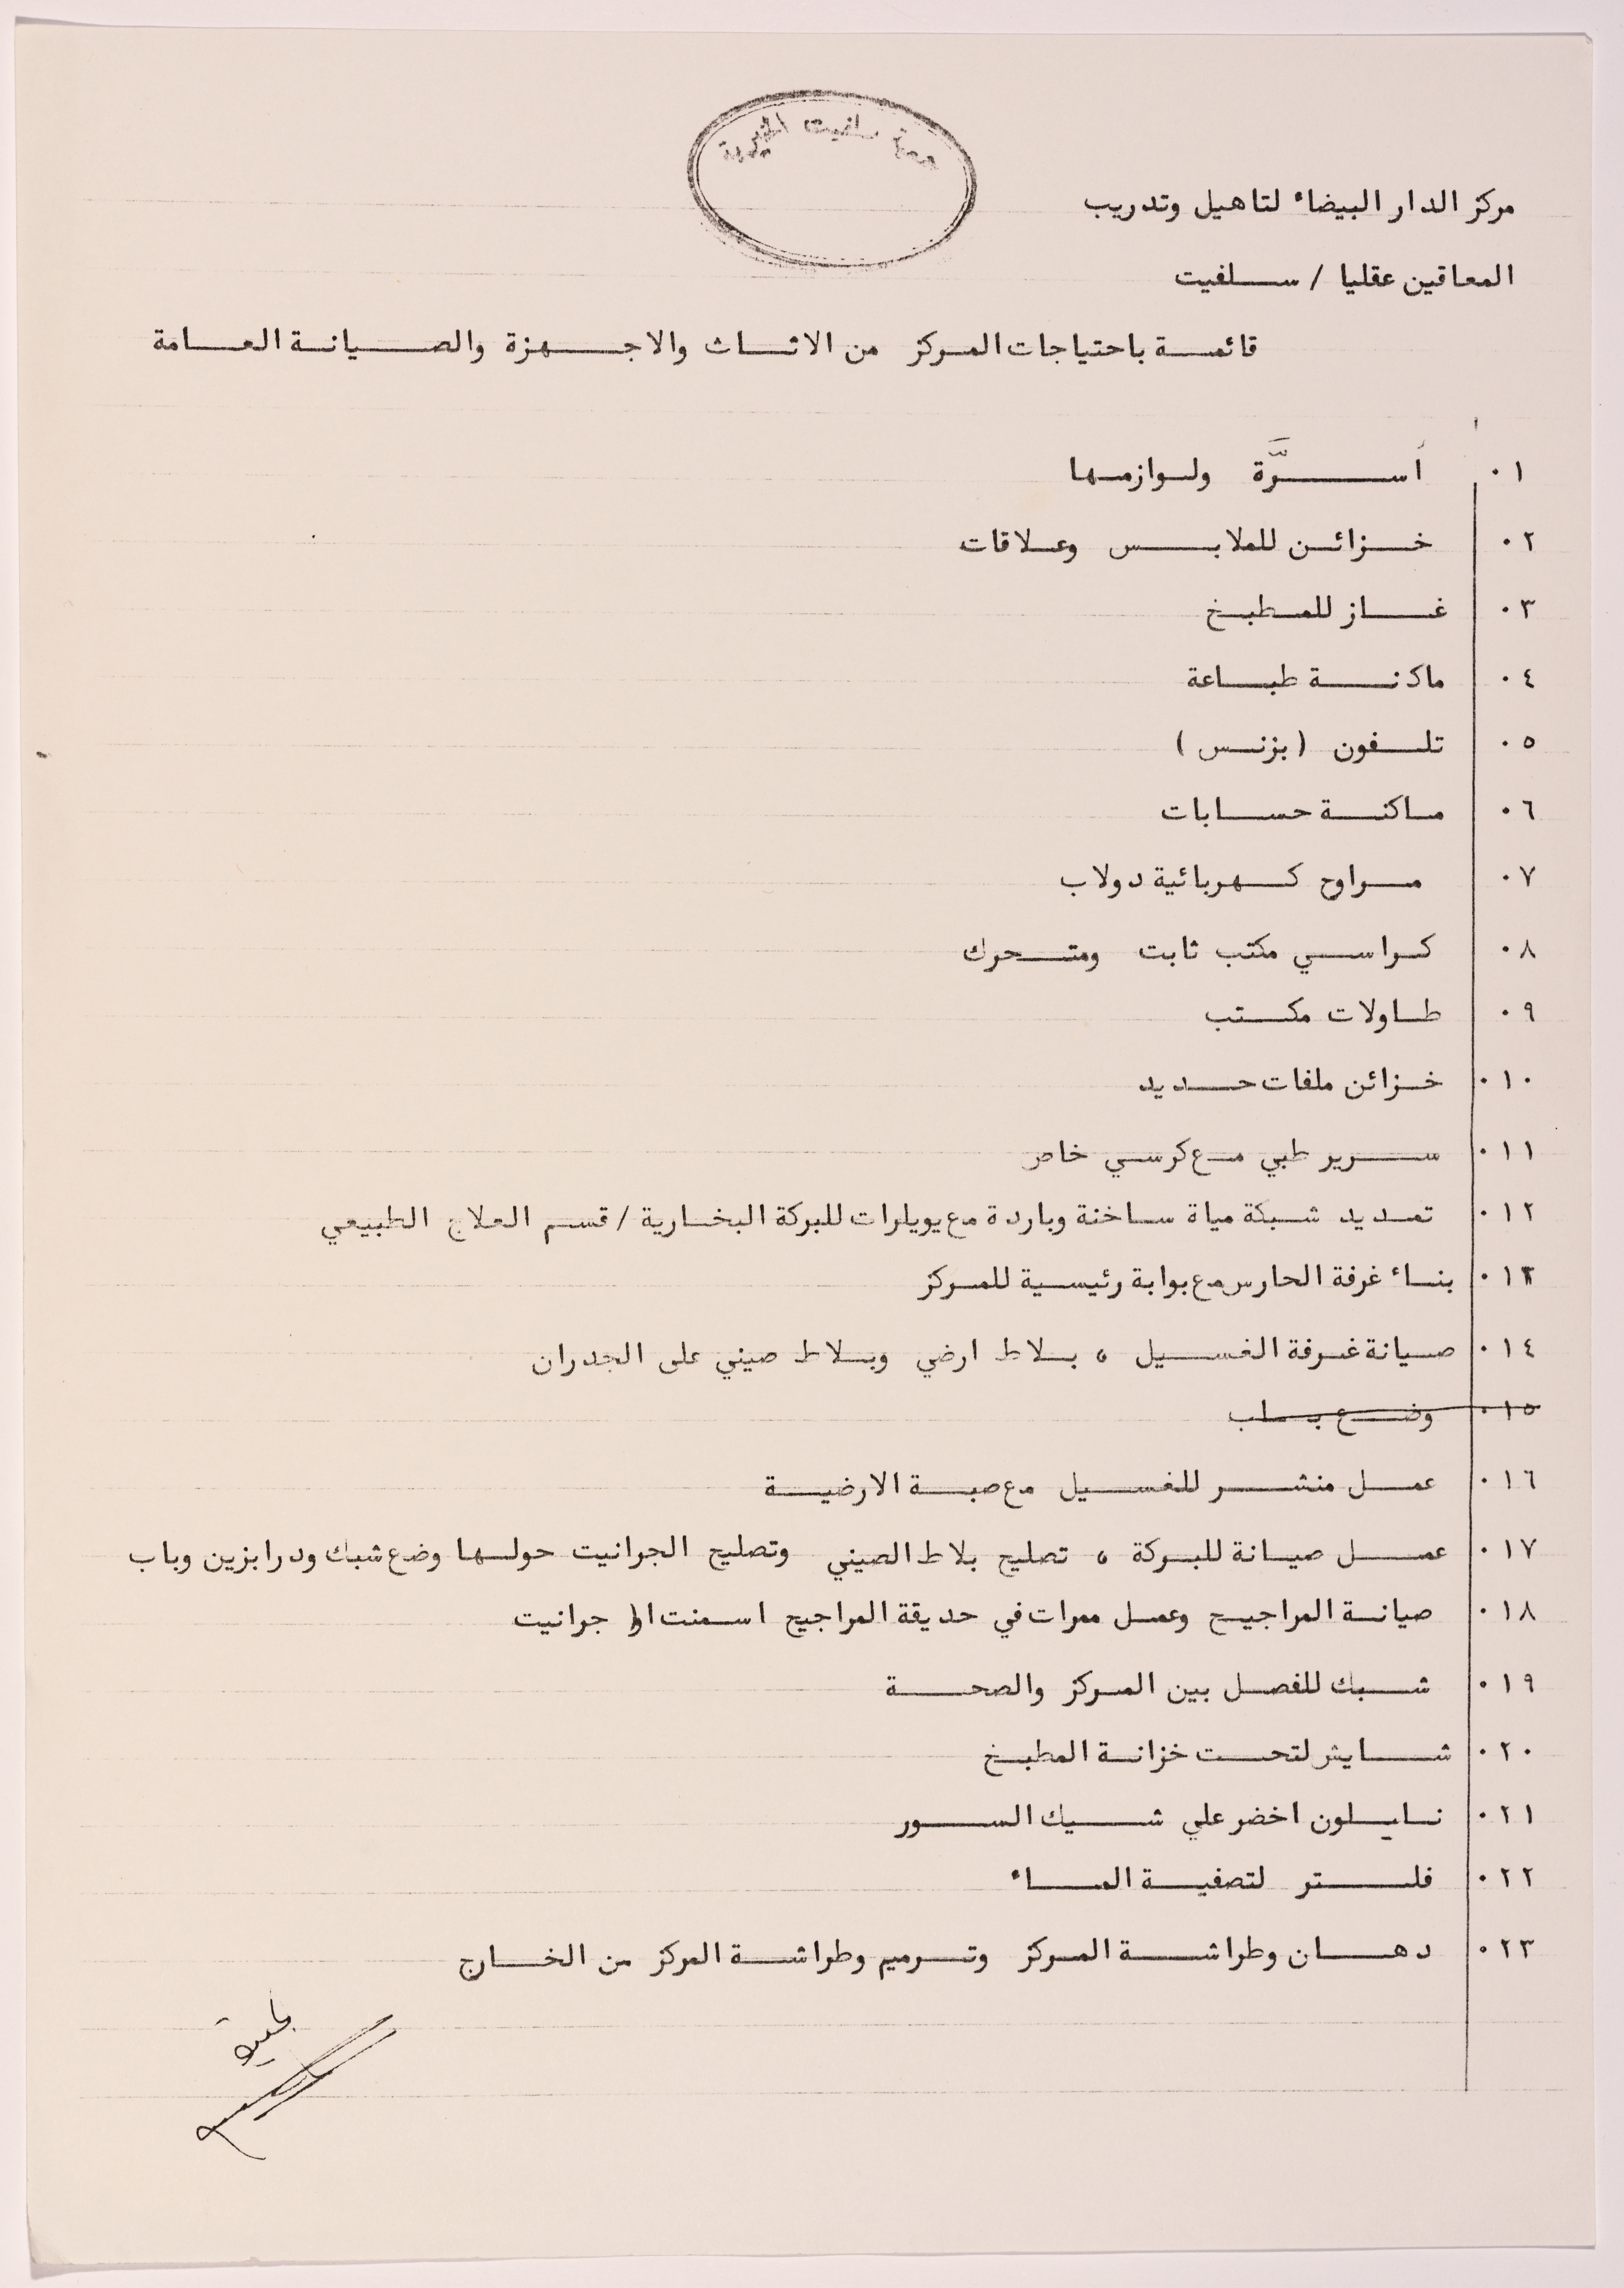 جمعية سلفيت الخيرية
مركز الدار البيضاء لتاهيل وتدريب
المعاقين عقليا / سلفيت
قائمة باحتياجات المركز من الاثاث والاجهزة والصيانة العامة
١٠ اسرَّة ولوازمها
٢٠ خزائن للملابس وعلاقات
٣٠ غاز للمطبخ
٤٠ ماكنة طباعة
٥٠ تلفون (بزنس)
٦٠ ماكنة حسابات
٧٠ مراوح كهربائية دولاب
٨٠ كراسي مكتب ثابت ومتحرك
٩٠ طاولات مكتب
١٠٠ خزائن ملفات حديد
١١٠ سرير طبي مع كرسي خاص
١٢٠ تمديد شبكة مياة ساخنة وباردة مع بويلرات للبركة البخارية / قسم العلاج الطبيعي
١٣٠ بناء غرفة الحارس مع بوابة رئيسية للمركز
١٤٠ صيانة غرفة الغسيل ، بلاط ارضي وبلاط صيني على الجدران
١٥٠ وضع
١٦٠ عمل منشر للغسيل مع صبة الارضية
١٧٠ عمل صيانة للبركة ، تصليح بلاط الصيني وتصليح الجرانيت حولها وضع شبك ودرابزين وباب
١٨٠ صيانة المراجيح وعمل ممرات في حديقة المراجيح اسمنت او جرانيت
١٩٠ شبك للفصل بين المركز والصحة
٢٠٠ شايش لتحت خزانة المطبخ
٢١٠ نايلون اخضر علي شيك السور
٢٢٠ فلتر لتصفية الماء
٢٣٠ دهان وطراشة المركز وترميم وطراشة المركز من الخارج